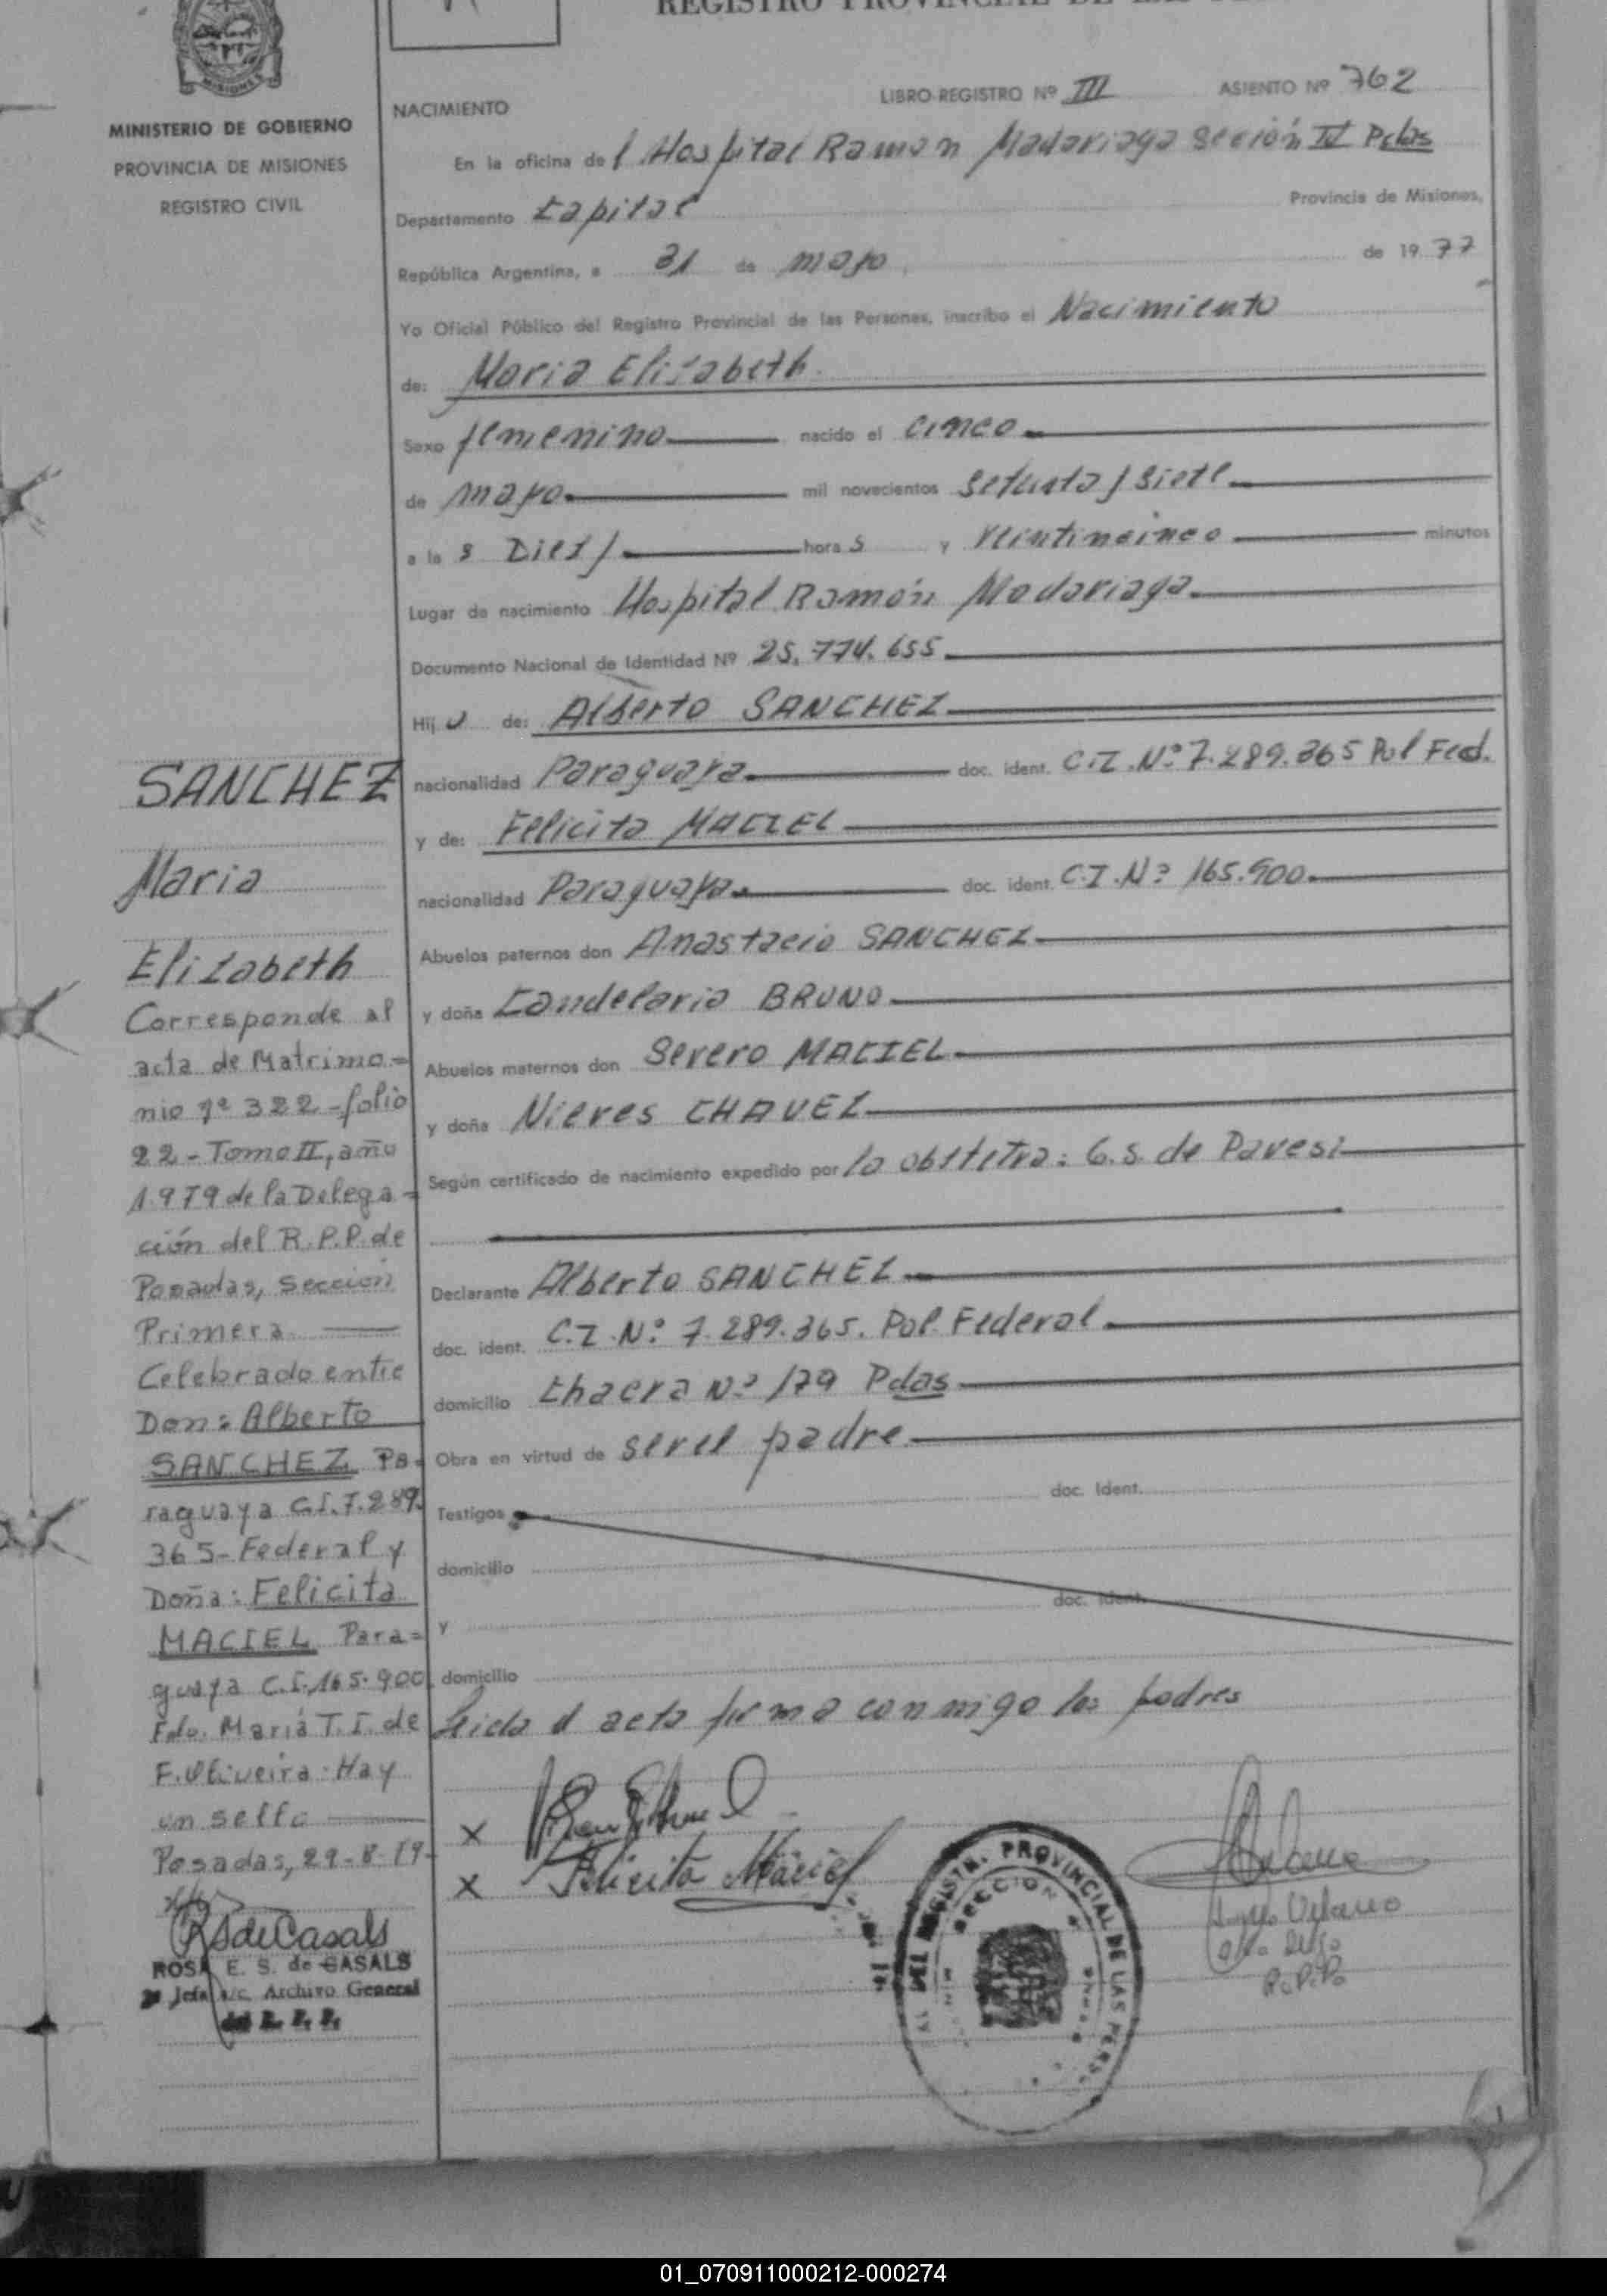 MISIONES
MINISTERIO DE GOBIERNO
PROVINCIA DE MISIONES
REGISTRO CIVIL
REGISTRO PROVINCIAL DE LAS
NACIMIENTO
LIBRO-REGISTRO Nº III ASIENTO Nº 762
En la oficina de l Hospital Ramon Madariaga Seción IV Pdas
Departamento Capital Provincia de Misiones,
República Argentina, a 31 de mayo de 1977
Yo Oficial Público del Registro Provincial de las Personas, inscribo el Nacimiento
de: Maria Elizabeth
Sexo femenino nacido el cinco
de mayo mil novecientos setenta y siete
a las Diez y hora s y veinticinco minutos
Lugar de nacimiento Hospital Ramón Madariaga
Documento Nacional de Identidad Nº 25.774.655
Hij a de: Alberto SANCHEZ
nacionalidad Paraguaya doc. ident. C.I.Nº 7.289.365 Pol Fed.
y de: Felicita MACIEL
nacionalidad Paraguaya doc. ident. C.I.Nº 165.900
Abuelos paternos don Anastacio SANCHEZ
y doña Candelaria BRUNO
Abuelos maternos don Severo MACIEL
y doña Nieves CHAVEZ
Según certificado de nacimiento expedido por la obstetra: G.S. de Pavesi
Declarante Alberto SANCHEZ
doc. ident. C.I.Nº 7.289.365. Pol. Federal
domicilio Chacra Nº 179 Pdas
Obra en virtud de ser el padre
Testigos doc. Ident.
domicilio
y doc. Ident.
domicilio
Leida el acta firma conmigo los padres
Felicita Maciel
SANCHEZ
Maria
Elizabeth
Corresponde al
acta de Matrimo=
nio nº 322-folio
22-Tomo II, año
1.979 de la Delega=
ción del R.P.P. de
Posadas, sección
Primera
Celebrado entre
Don: Alberto
SANCHEZ Pa=
raguaya C.I.7.289.
365-Federal y
Doña: Felicita
MACIEL Para=
guaya C.I.165.900
Fdo. Maria T.I. de
F. Oliveira-Hay
un sello
Posadas, 29-8-79-
RSdeCasals
ROSA E. S. de CASALS
Jefa a/c. Archivo General
del R. P. P.
DEL REGISTR. PROVINCIAL DE LAS PERS.
SECCION
R.P.P.
01_070911000212-000274